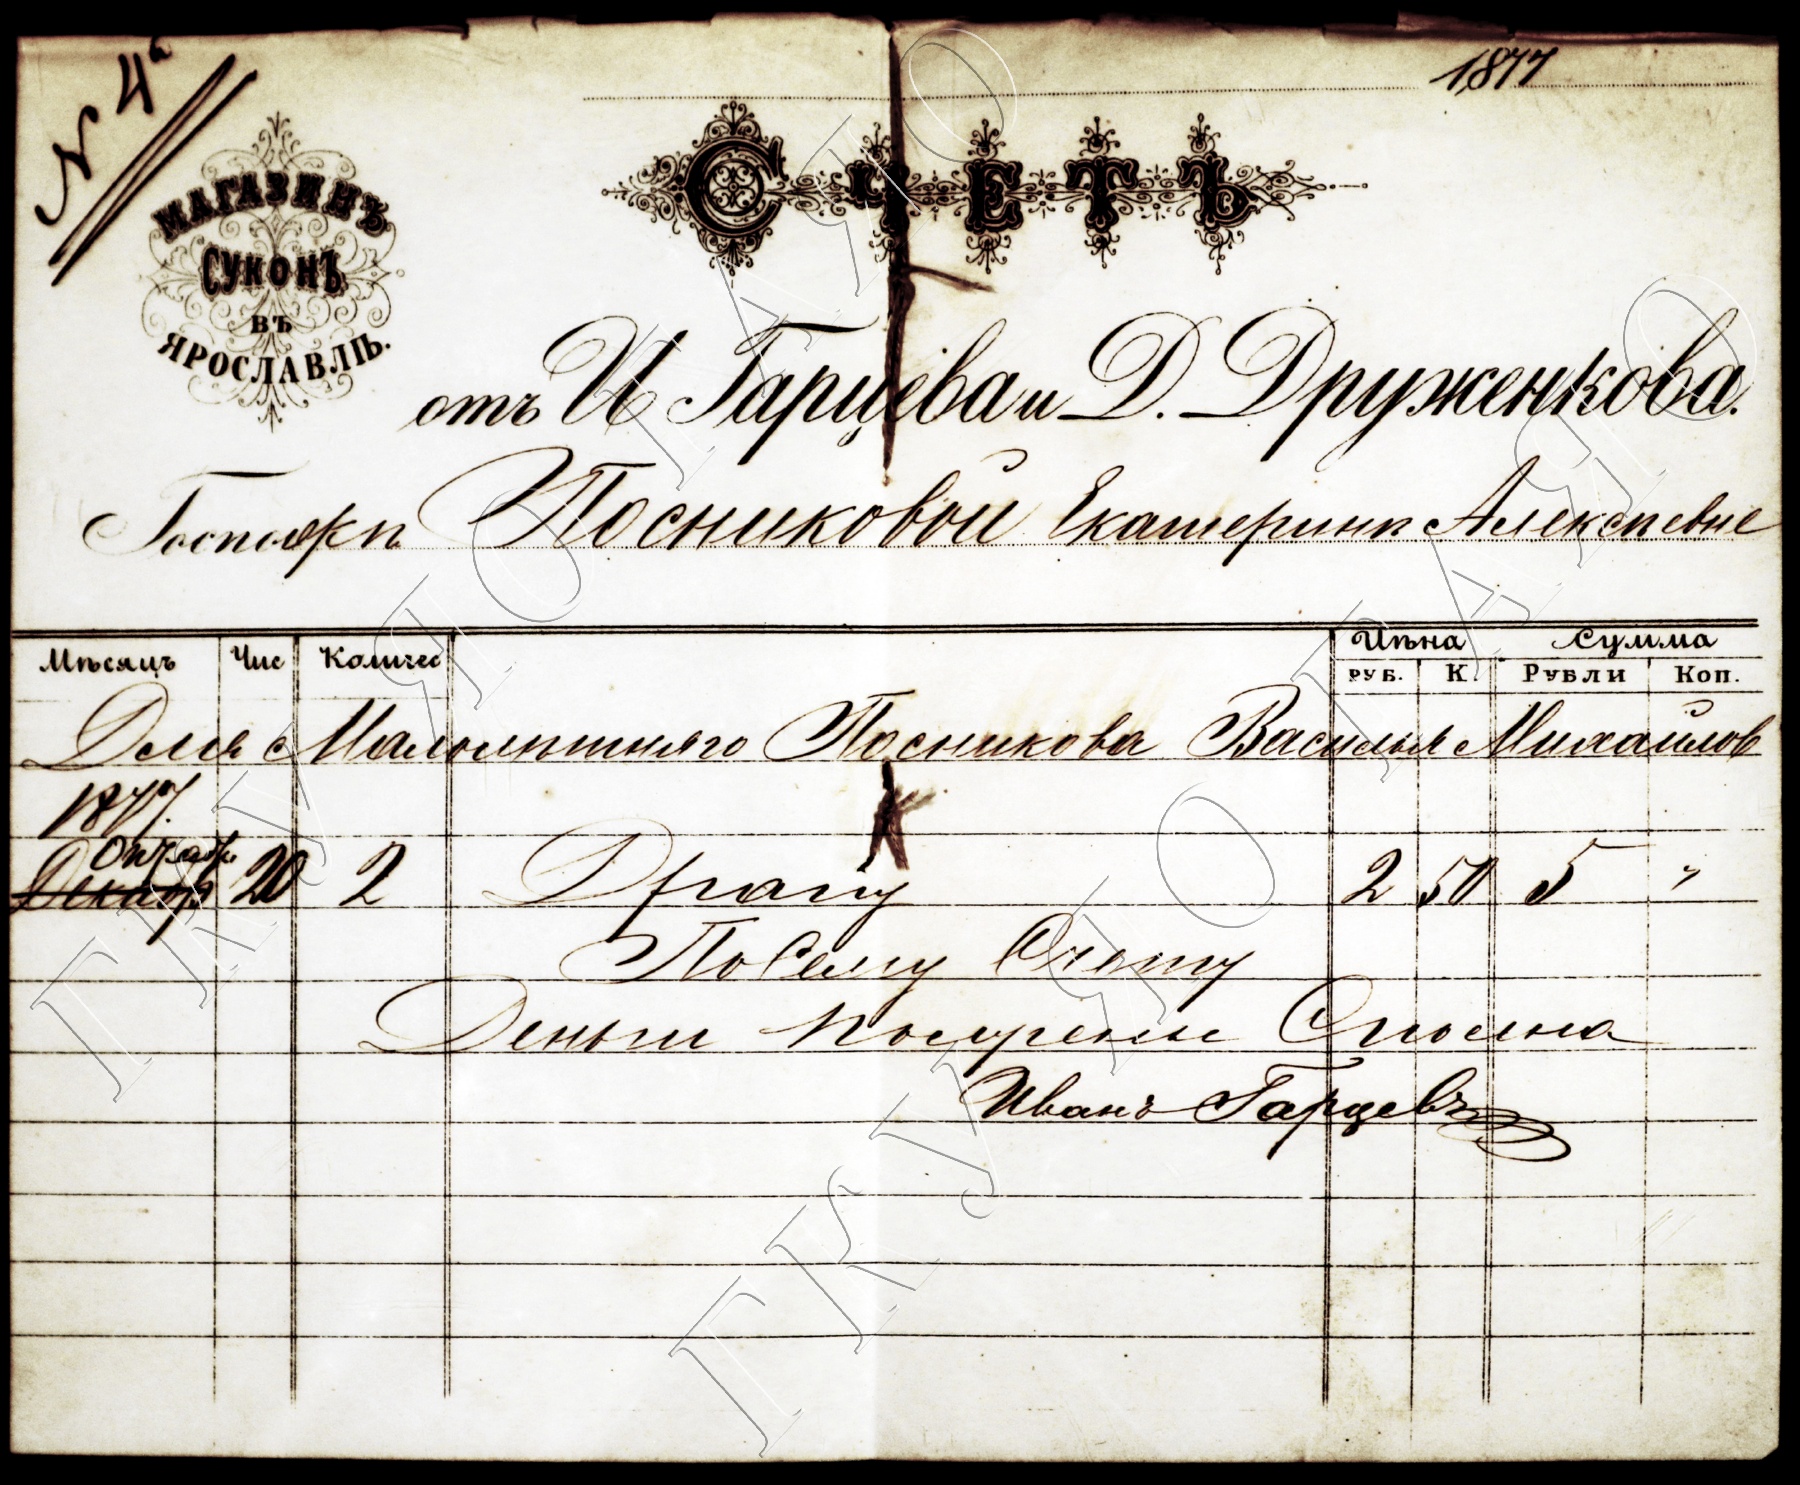 N 4й
1877
СЧЕТЪ
МАГАЗИНЪ
СУКОНЪ
ВЪ
ЯРОСЛАВЛѢ.
отъ И Гарцева и Д. Друженкова.
Госпожѣ Посниковой Екатеринѣ Алексѣевне
Мѣсяцъ Чис Количес Цѣна Сумма
РУБ. К. РУБЛИ КОП.
Для Малолѣтняго Посникова Василья Михайлов
1877.
Октябр.
Декабр 20 2 Драпу 2 50 5 "
По Сему Счету
Деньги получены Сполна
Иванъ Гарцевъ
ГКУ ЯО ГАЯО
ГКУ ЯО ГАЯО